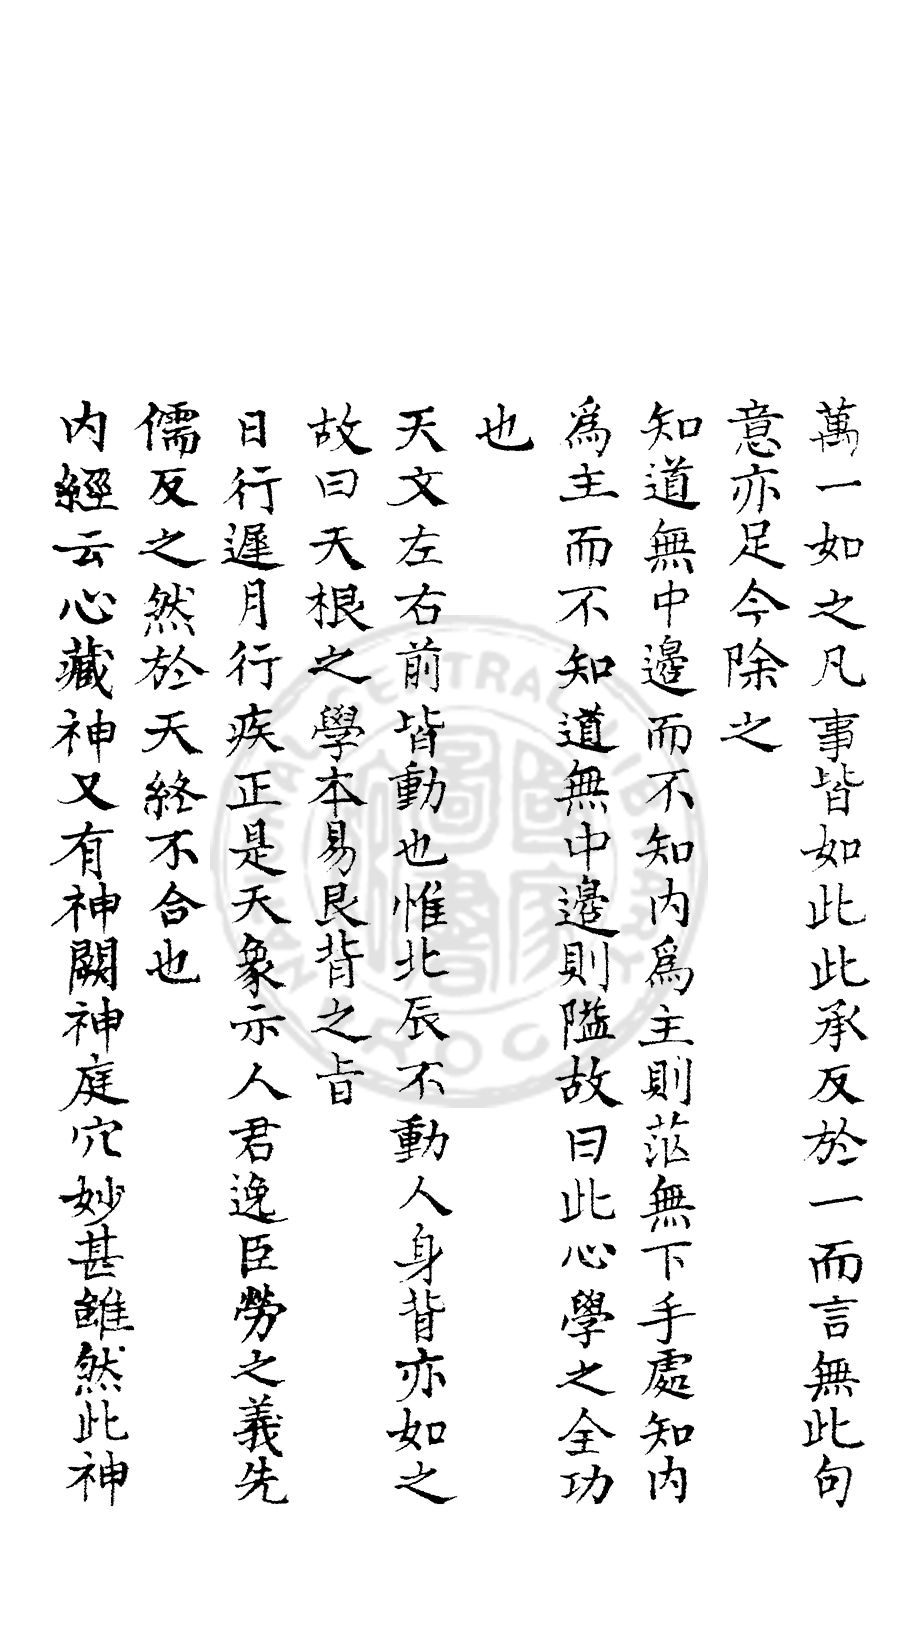 萬一如之凡事皆如此此承反於一而言無此句
意亦足今除之
知道無中邊而不知内爲主則茫無下手處知内
爲主而不知道無中邊則隘故曰此心學之全功
也
天文左右前皆動也惟北辰不動人身背亦如之
故曰天根之學本易艮背之旨
日行遲月行疾正是天象示人君逸臣勞之義先
儒反之然於天終不合也
内經云心藏神又有神闕神庭穴妙甚雖然此神
NATIONAL CENTRAL LIBRARY
R.O.C.
國家圖書